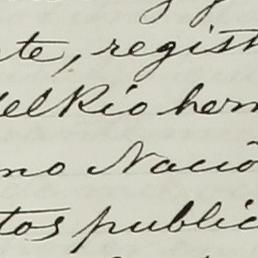 te, regist
del Rio herm
no Nació
tos public